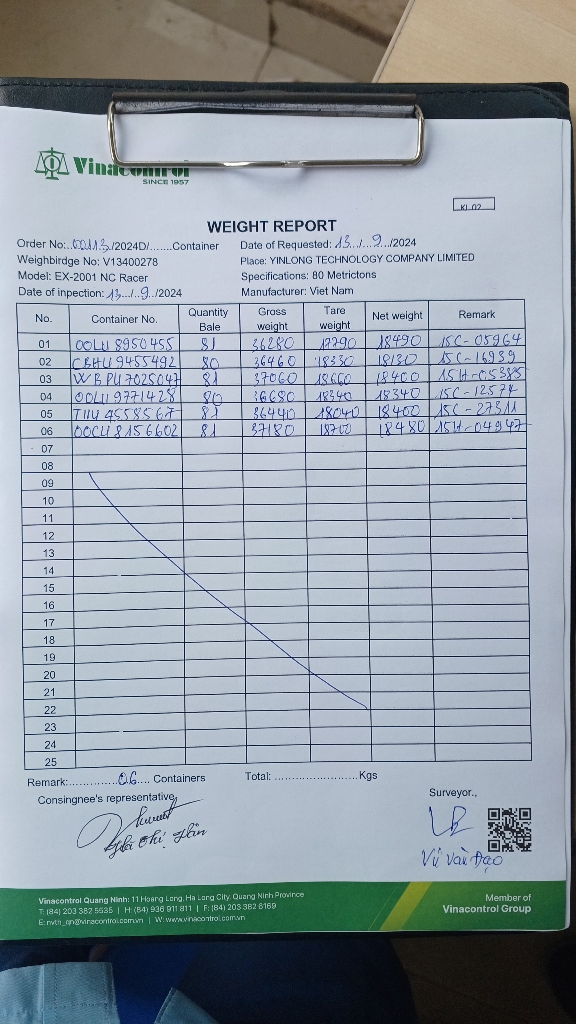 Vinacontrol
SINCE 1957
KL02
WEIGHT REPORT
Order No:..00113./2024D/.......Container Date of Requested: 13.../...9.../2024
Weighbirdge No: V13400278 Place: YINLONG TECHNOLOGY COMPANY LIMITED
Model: EX-2001 NC Racer Specifications: 80 Metrictons
Date of inpection: 13.../...9.../2024 Manufacturer: Viet Nam
No. Container No. Quantity Bale Gross weight Tare weight Net weight Remark
01 OOLU 8950455 81 36280 17790 18490 15C-05964
02 CBHU 9455492 80 36460 18330 18130 15C-16939
03 WBPU 7025047 81 37060 18660 18400 15H-05385
04 OOLU 9771428 80 36680 18340 18340 15C-12574
05 TIIU 4558567 81 36440 18040 18400 15C-27311
06 OOCU 8156602 81 37180 18700 18480 15H-04947
07
08
09
10
11
12
13
14
15
16
17
18
19
20
21
22
23
24
25
Remark:...............06.... Containers Total: .........................Kgs
Consingnee's representative, Surveyor.,
Vũ Văn Đạo
Vinacontrol Quang Ninh: 11 Hoang Long, Ha Long City, Quang Ninh Province
T: (84) 203 382 5535 | H: (84) 936 911 811 | F: (84) 203 382 6169
E: nvth_qn@vinacontrol.com.vn | W: www.vinacontrol.com.vn
Member of
Vinacontrol Group